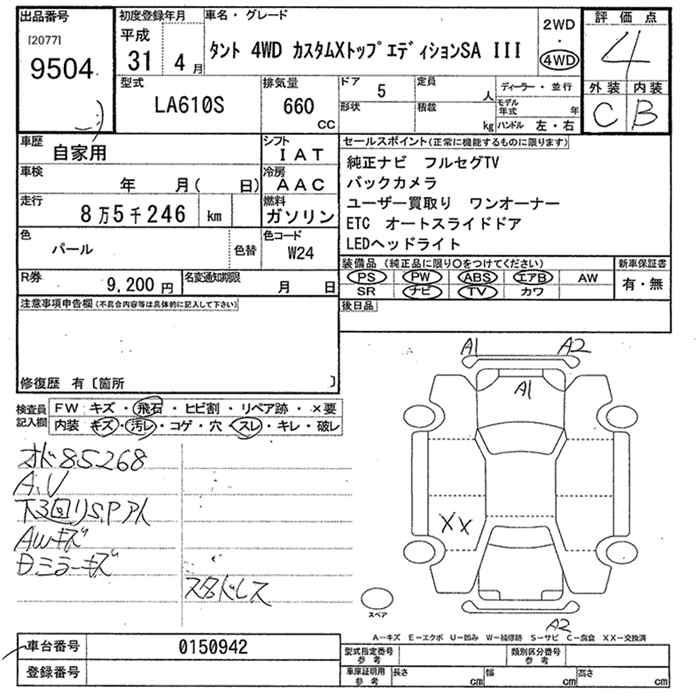 出品番号
[2077]
9504
初度登録年月
平成
31 4 月
車名・グレード
タント 4WD カスタムXトップエディションSA III
2WD
・
4WD
評価点
4
外装 内装
C B
型式
LA610S
排気量
660
CC
ドア 5
形状
定員 人
積載 kg
ディーラー・並行
モデル年式 年
ハンドル 左・右
車歴
自家用
シフト
IAT
車検
年 月( 日)
冷房
AAC
走行
8万5千246 km
燃料
ガソリン
色
パール
色替
色コード
W24
R券
9,200円
名変通知期限
月 日
セールスポイント(正常に機能するものに限ります)
純正ナビ フルセグTV
バックカメラ
ユーザー買取り ワンオーナー
ETC オートスライドドア
LEDヘッドライト
装備品(純正品に限り○をつけてください)
PS PW ABS エアB AW
SR ナビ TV カワ
新車保証書
有・無
後日品
注意事項申告欄(不具合内容等は具体的に記入して下さい)
修復歴 有〔箇所 〕
検査員
記入欄
FW キズ・飛石・ヒビ割・リペア跡・×要
内装 キズ・汚レ・コゲ・穴・スレ・キレ・破レ
オド85268
A,V
下3回りS,Pアト
AWキズ
Dミラーキズ
スタドレス
A1 A2
A1
XX
A2
スペア
A−キズ E−エクボ U−凹み W−補修跡 S−サビ C−腐食 XX−交換済
車台番号 0150942
登録番号
型式指定番号
参考
類別区分番号
参考
車庫証明用
参考
長さ cm
幅 cm
高さ cm